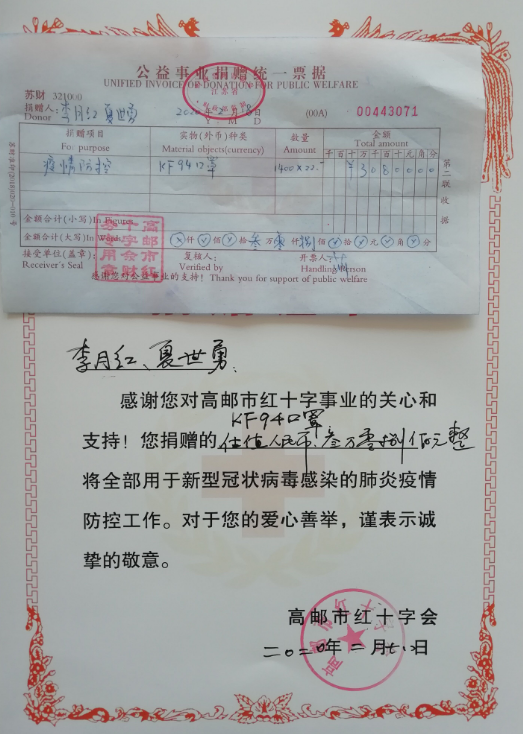 公益事业捐赠统一票据
UNIFIED INVOICE OF DONATION FOR PUBLIC WELFARE
苏财 321000
捐赠人: 李月红 夏世勇
Donor
Y M D
(00A)
00443071
捐赠项目 实物(外币)种类 数量 金额
For purpose Material objects(currency) Amount Total amount
千百十万千百十元角分
疫情防控 KF94口罩 1400×22.- ¥3080000
金额合计(小写)In Figures
金额合计(大写)In Words 仟 佰 拾叁万零仟捌佰 拾 元 角 分
接受单位(盖章): 复核人: 开票人:
Receiver's Seal Verified by Handling Person
感谢您对公益事业的支持! Thank you for support of public welfare
第二联 收据
高邮市红十字会
李月红、夏世勇:
感谢您对高邮市红十字事业的关心和
KF94口罩
支持!您捐赠的价值人民币叁万零捌佰元整
将全部用于新型冠状病毒感染的肺炎疫情
防控工作。对于您的爱心善举，谨表示诚
挚的敬意。
高邮市红十字会
二〇二〇年二月 日